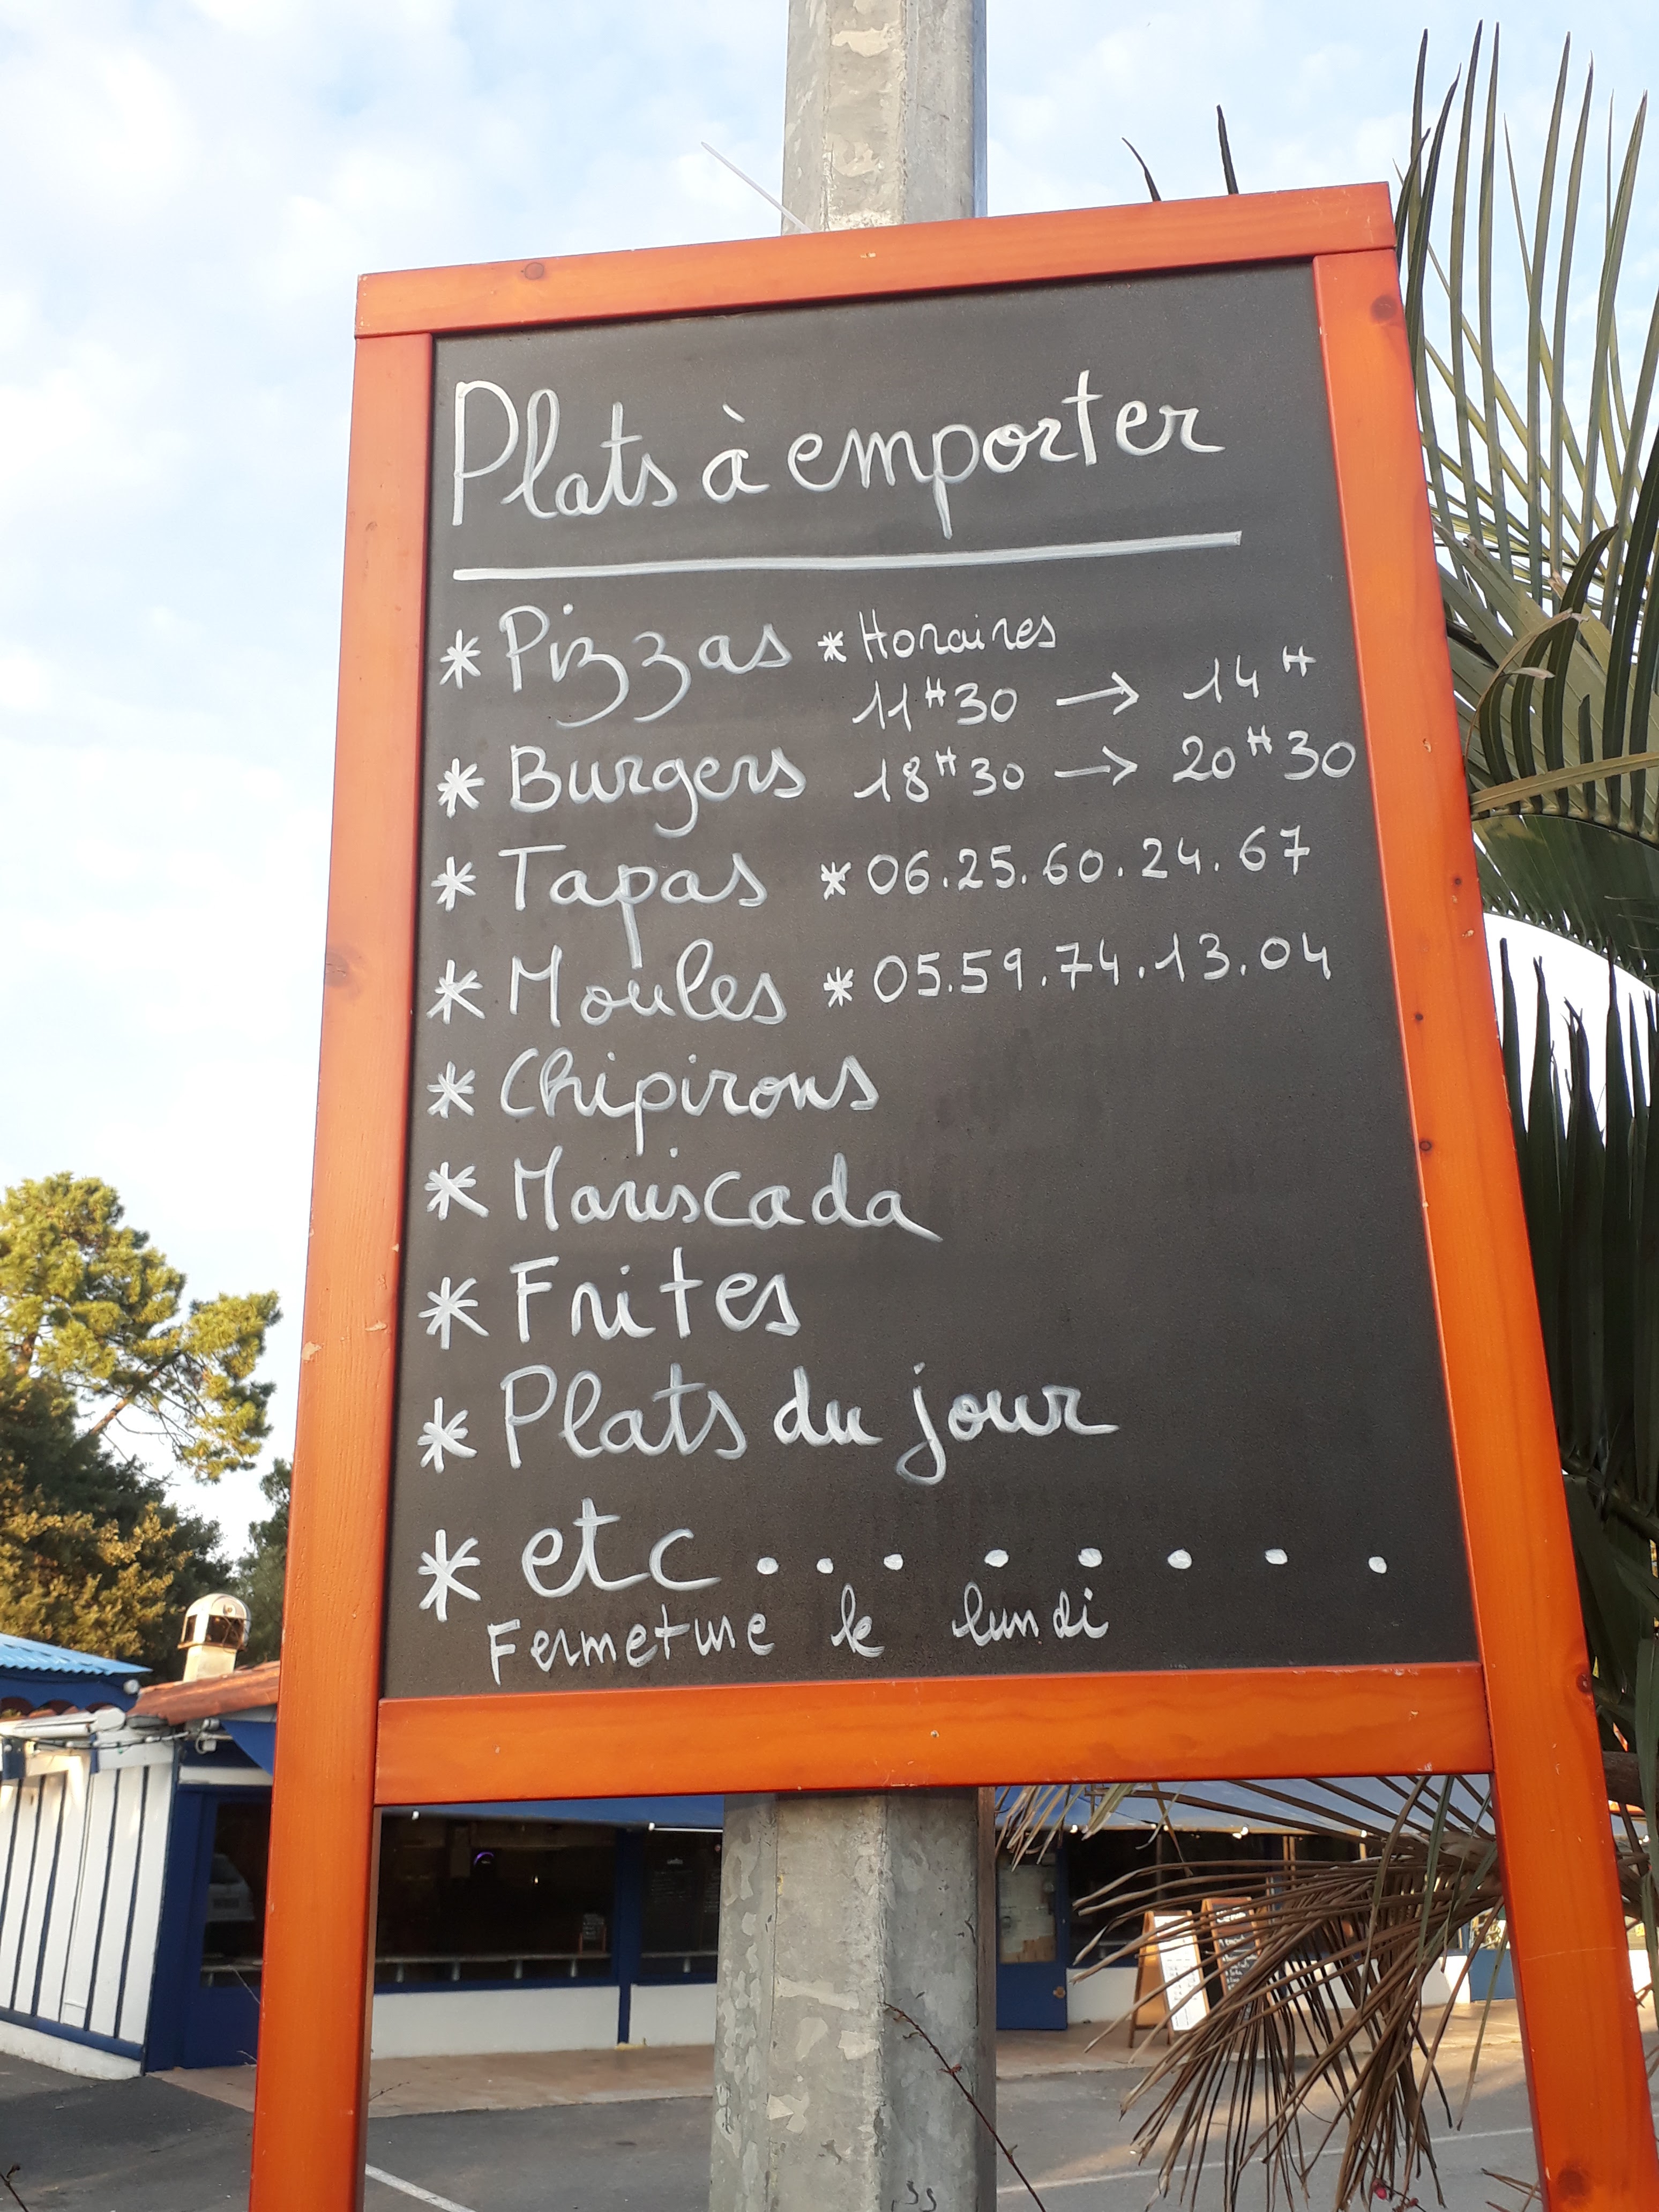 Plats à emporter
* Pizzas * Horaires
11H30 → 14H
* Burgers 18H30 → 20H30
* Tapas * 06.25.60.24.67
* Moules * 05.59.74.13.04
* Chipirons
* Mariscada
* Frites
* Plats du jour
* etc ........
Fermeture le lundi